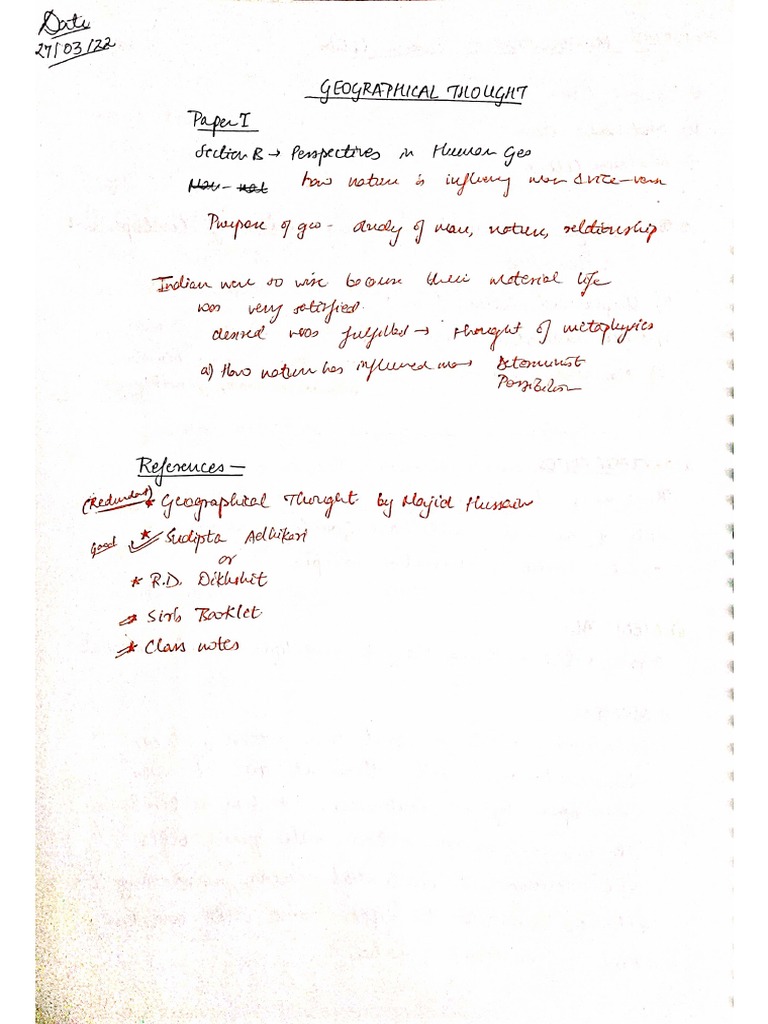 Date
27/03/22
GEOGRAPHICAL THOUGHT
Paper I
Section B → Perspectives in Human Geo
how nature is influeng man & vice-versa
Purpose of geo - study of man, nature, relationship
Indian were so wise because their material life
was very satisfied.
desired was fulfilled → thought of metaphysics
a) How nature has influenced man → Determinist
Possibilism
References —
(Redundant) * Geographical Thought by Majid Hussain
Good * Sudipta Adhikari
or
* R.D. Dikhshit
Sir's Booklet
* Class notes